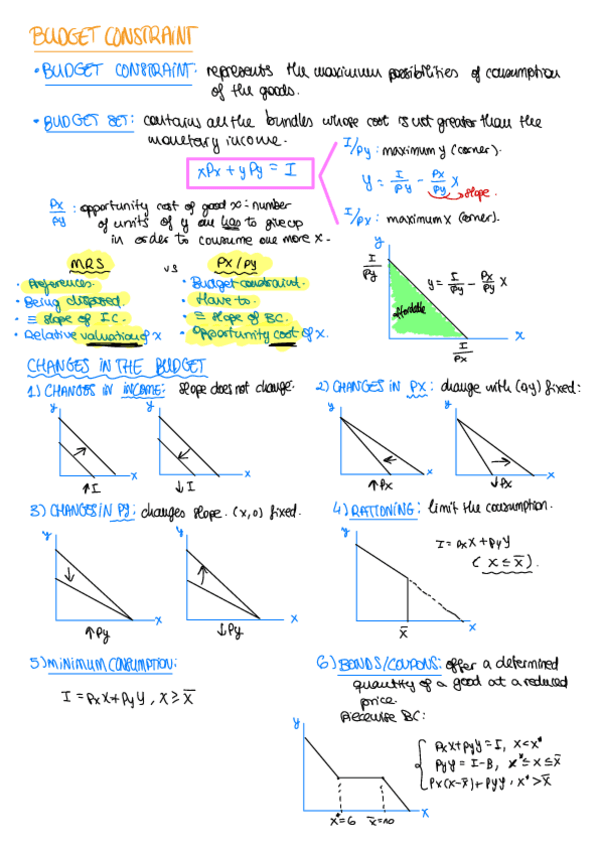 BUDGET CONSTRAINT
• BUDGET CONSTRAINT: represents the maximum possibilities of consumption
of the goods.
• BUDGET SET: contains all the bundles whose cost is not greater than the
monetary income.
xPx + yPy = I
I/Py: maximum y (corner).
y = I/Py - Px/Py x
slope.
I/Px: maximum x (corner).
Px/Py : opportunity cost of good x = number
of units of y one has to give up
in order to consume one more x.
MRS vs Px/Py
• Preferences. • Budget constraint.
• Being disposed. • Have to.
• = slope of I.C. • = slope of BC.
• Relative valuation of x • Opportunity cost of x.
y
I/Py
y = I/Py - Px/Py x
affordable
x
I/Px
CHANGES IN THE BUDGET
1) CHANGES IN INCOME: slope does not change.
y x ↑I
y x ↓I
2) CHANGES IN PX: change with (0,y) fixed:
y x ↑Px
y x ↓Px
3) CHANGES IN Py: changes slope. (x,0) fixed.
y x ↑Py
y x ↓Py
4) RATIONING: limit the consumption.
I = PxX + PyY
(X ≤ x̄).
y x
x̄
5) MINIMUM CONSUMPTION:
I = PxX + PyY, X ≥ x̄
6) BONDS/COUPONS: offer a determined
quantity of a good at a reduced
price.
Piecewise BC:
y x
x*=6 x̄=10
PxX + PyY = I, X < x*
PyY = I - B, x* ≤ x ≤ x̄
Px(x-x̄) + PyY, x* > x̄